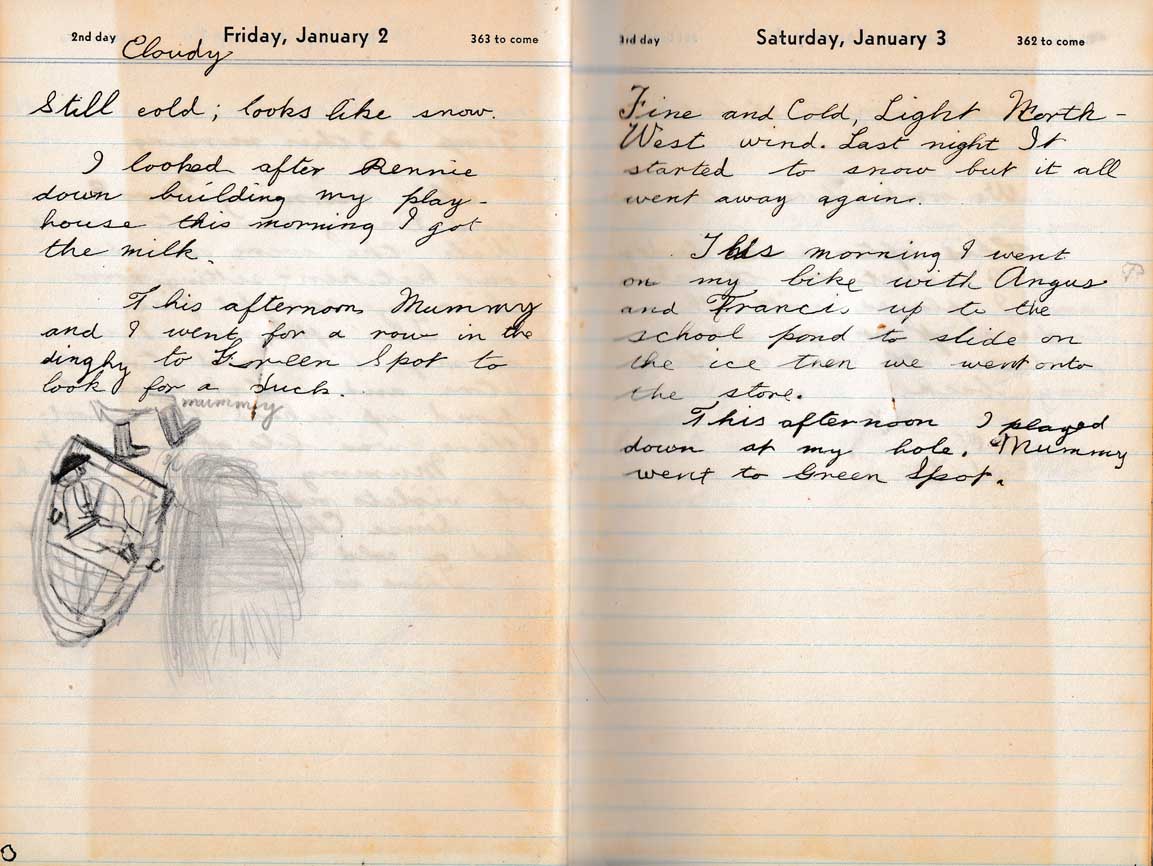 2nd day Friday, January 2 363 to come
Cloudy
Still cold; looks like snow.
I looked after Rennie
down building my play-
house this morning I got
the milk.
This afternoon Mummy
and I went for a row in the
dinghy to Green Spot to
look for a duck.
mummy
3rd day Saturday, January 3 362 to come
Fine and Cold, Light North-
West wind. Last night It
started to snow but it all
went away again.
This morning I went
on my bike with Angus
and Francis up to the
school pond to slide on
the ice then we went onto
the store.
This afternoon I played
down at my hole. Mummy
went to Green Spot.